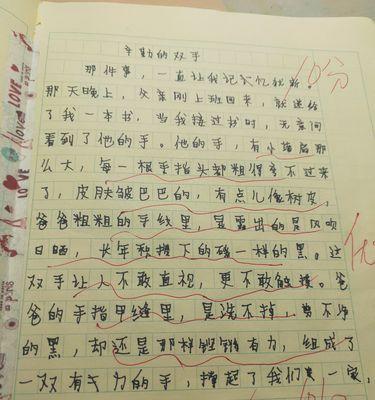 辛勤的双手
10分
那件事，一直让我记忆犹新。
那天晚上，父亲刚上班回来，就递给
了我一本书，当我接过书时，无意间
看到了他的手。他的手，有小簸箕那
么大，每一根手指头都粗得弯不过来
了，皮肤皱巴巴的，有点儿像树皮，
爸爸粗粗的手纹里，显露出的是风吹
日晒，长年积攒下的碳一样的黑。这
双手让人不敢直视，更不敢触摸。爸
优
爸的手指甲缝里，是洗不掉，剪不净
的黑，却还是那样铿锵有力，组成了
一双有力的手，撑起了我们一家，
LOVE
LOVE